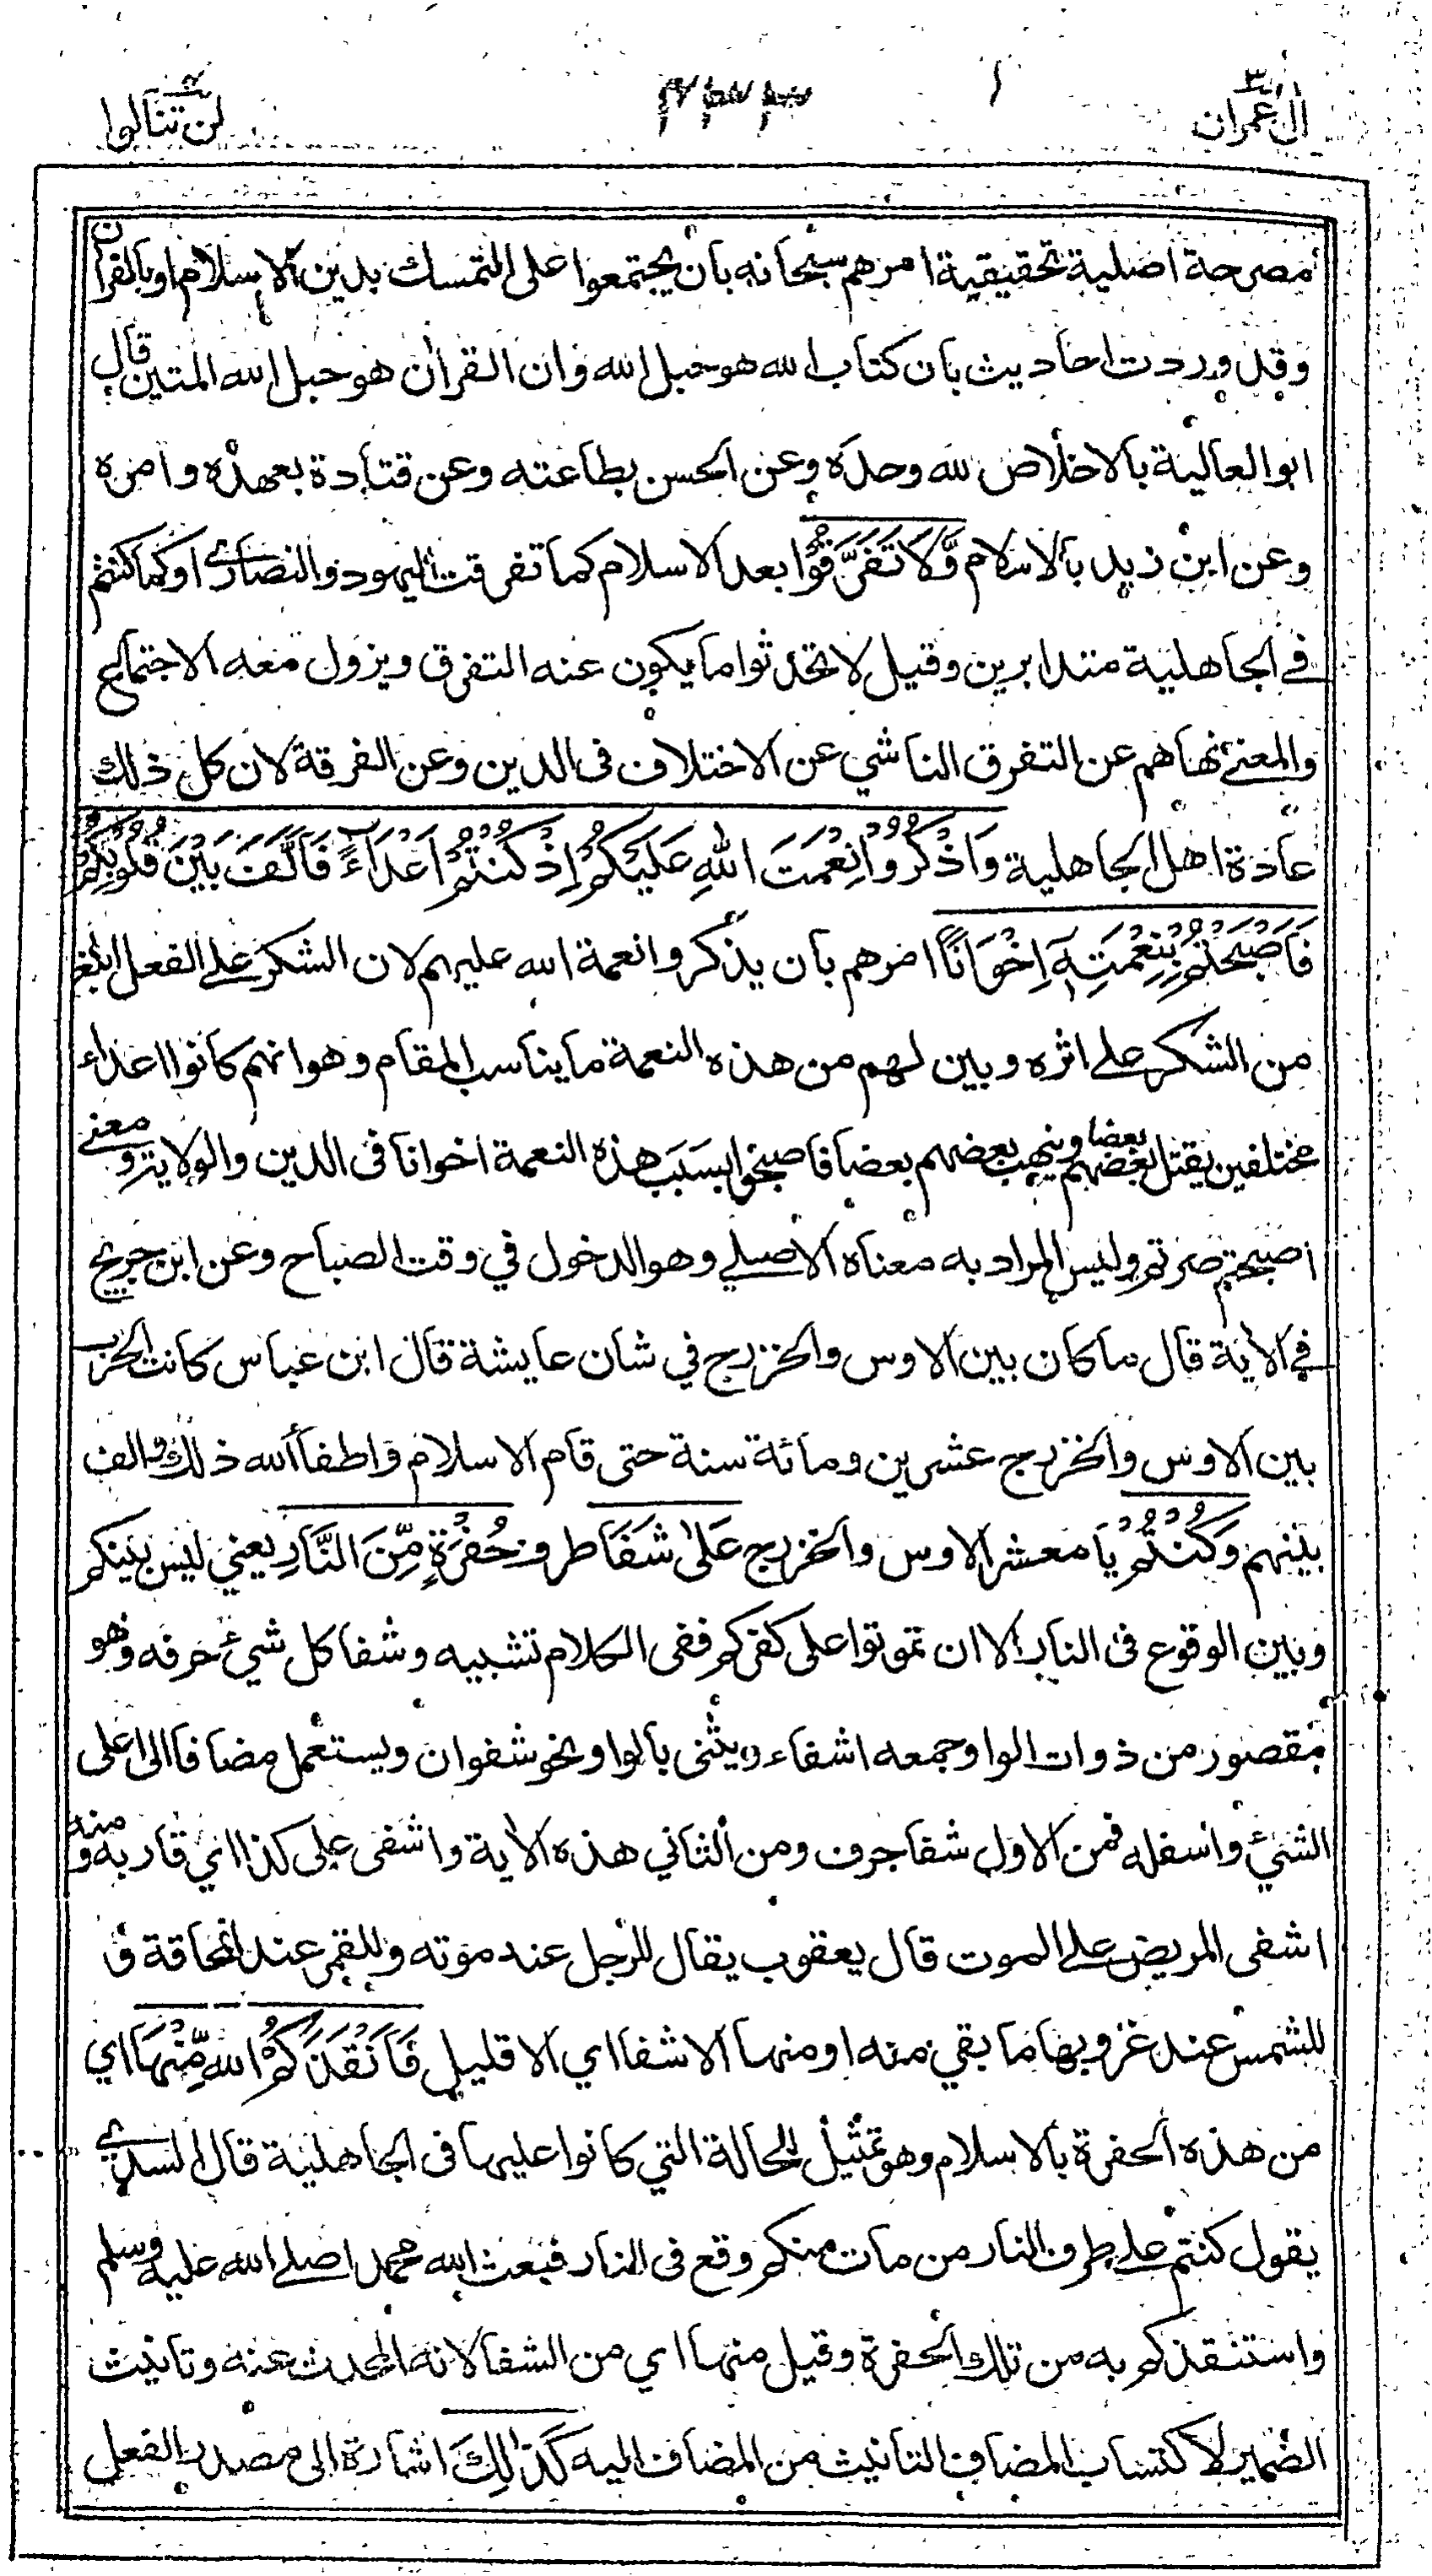 اٰل عمران ٣
لن تنالوا
مصرحة اصلية تحقيقية امرهم سبحانه بان يجتمعوا على التمسك بدين الاسلام او بالقرآن
وقد وردت احاديث بان كتاب الله هو حبل الله وان القرآن هو حبل الله المتين قال
ابو العالية بالاخلاص لله وحده وعن الحسن بطاعته وعن قتادة بعهده وامره
وعن ابن زيد بالاسلام وَّلَا تَفَرَّقُوْا بعد الاسلام كما تفرقت اليهود والنصارى او كما كنتم
في الجاهلية متدابرين وقيل لا تحدثوا ما يكون عنه التفرق ويزول معه الاجتماع
والمعنى نهاهم عن التفرق الناشي عن الاختلاف في الدين وعن الفرقة لان كل ذلك
عادة اهل الجاهلية وَاذْكُرُوْا نِعْمَتَ اللهِ عَلَيْكُمْ اِذْ كُنْتُمْ اَعْدَآءً فَاَلَّفَ بَيْنَ قُلُوْبِكُمْ
فَاَصْبَحْتُمْ بِنِعْمَتِهٖٓ اِخْوَانًا امرهم بان يذكروا نعمة الله عليهم لان الشكر على الفعل ابلغ
من الشكر على اثره وبين لهم من هذه النعمة ما يناسب المقام وهو انهم كانوا اعداء
مختلفين يقتل بعضهم بعضا وينهب بعضهم بعضا فاصبحوا بسبب هذه النعمة اخوانا في الدين والولاية ومعنى
اصبحتم صرتم وليس المراد به معناه الاصلي وهو الدخول في وقت الصباح وعن ابن جريج
في الآية قال ما كان بين الاوس والخزرج في شان عايشة قال ابن عباس كانت الحرب
بين الاوس والخزرج عشرين ومائة سنة حتى قام الاسلام واطفأ الله ذلك والف
بينهم وَكُنْتُمْ يا معشر الاوس والخزرج عَلٰى شَفَا طرف حُفْرَةٍ مِّنَ النَّارِ يعني ليس بينكم
وبين الوقوع في النار الا ان تموتوا على كفركم ففي الكلام تشبيه وشفا كل شيء حرفه وهو
مقصور من ذوات الواو وجمعه اشفاء ويثنى بالواو نحو شفوان ويستعمل مضافا الى اعلى
الشيء واسفله فمن الاول شفا جرف ومن الثاني هذه الآية واشفى على كذا اي قاربه ومنه
اشفى المريض على الموت قال يعقوب يقال للرجل عند موته وللقمر عند انمحاقه و
للشمس عند غروبها ما بقي منه او منها الا شفا اي الا قليل فَاَنْقَذَكُمْ اللهُ مِّنْهَا اي
من هذه الحفرة بالاسلام وهو تمثيل للحالة التي كانوا عليها في الجاهلية قال السدي
يقول كنتم على طرف النار من مات منكم وقع في النار فبعث الله محمدا صلى الله عليه وسلم
واستنقذكم به من تلك الحفرة وقيل منها اي من الشفا لانه المحدث عنه وتانيث
الضمير لاكتساب المضاف التانيث من المضاف اليه كَذٰلِكَ اشارة الى مصدر الفعل